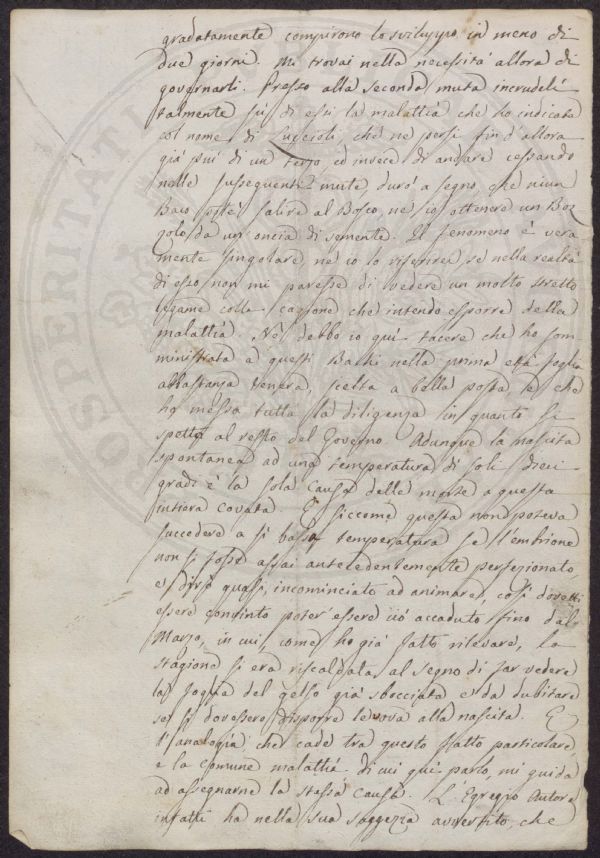 gradatamente compirono lo sviluppo in meno di
due giorni. Mi trovai nella necessità allora di
governarli. Presso alla seconda muta incrudelì
talmente su di essi la malattia che ho indicata
col nome di Luccioli, che ne persi fin d'allora
già più di un terzo, ed invece di andare cessando
nelle susseguenti mute, durò a segno, che niun
Baco potè salire al Bosco, nè io ottenere un Boz
zolo da un'oncia di semente. Il fenomeno è vera
mente singolare nè io lo riferirei se nella realtà
di esso non mi paresse di vedere un molto stretto
legame colla cagione che intendo esporre della
malattia. Nè debbo io quì tacere che ho som
ministrata a questi Bachi nella prima età foglia
abbastanza tenera, scelta a bella posta, e che
ho messa tutta la diligenza in quanto si
spetta al resto del Governo. Adunque la nascita
spontanea ad una temperatura di soli dieci
gradi è la sola causa della morte a questa
intiera covata. E siccome questa non poteva
succedere a sì bassa temperatura se l'embrione
non si fosse assai antecedentemente perfezionato
e, dirò quasi, incominciato ad animare, così dovetti
essere convinto poter essere ciò accaduto fino dal
Marzo, in cui, come ho già fatto rilevare, la
stagione si era riscaldata al segno di far vedere
la foglia del gelso già sbocciata e da dubitare
se si dovessero disporre le uova alla nascita. E
l'analogia che cade tra questo fatto particolare
e la comune malattia di cui quì parlo, mi guida
ad assegnarne la stessa causa. L'Egregio Autore
infatti ha nella sua saggezza avvertito, che
PROSPERITATI